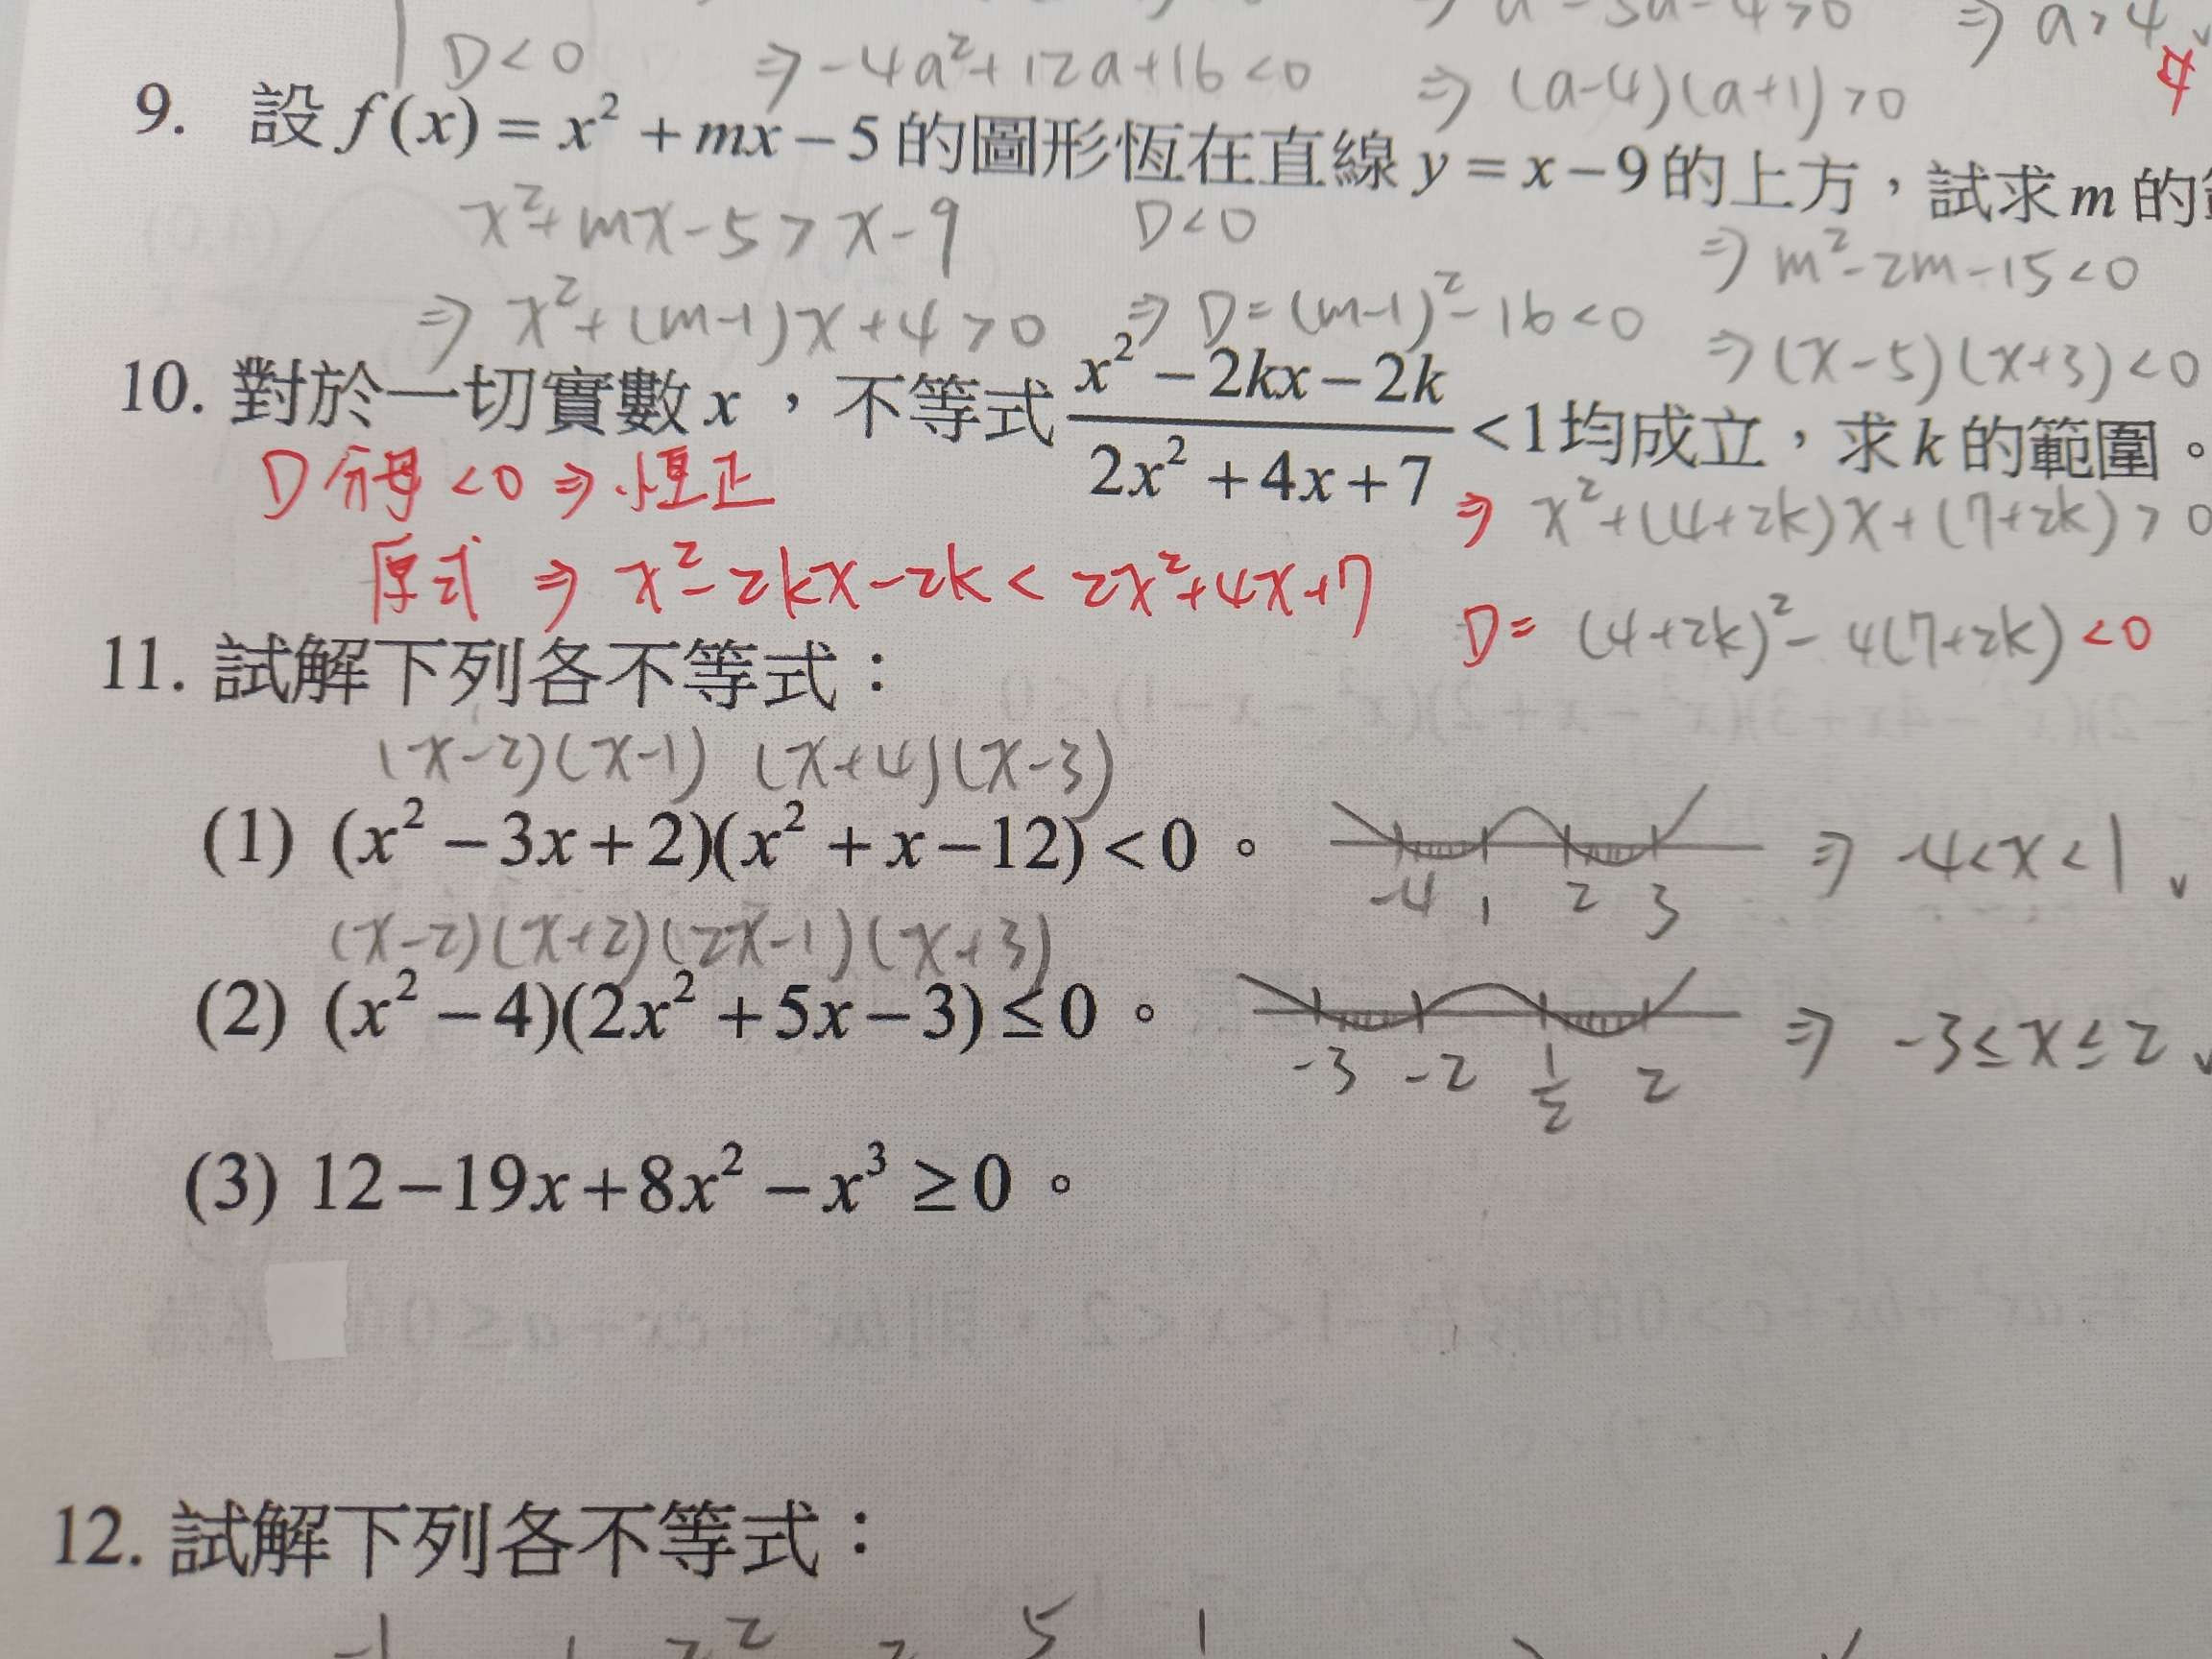 D<0 ⇒ -4a²+12a+16<0 ⇒ (a-4)(a+1)>0 ⇒ a>4
9. 設 f(x) = x² + mx − 5 的圖形恆在直線 y = x − 9 的上方，試求 m 的
x²+mx-5>x-9 D<0 ⇒ m²-2m-15<0
⇒ x²+(m-1)x+4>0 ⇒ D=(m-1)²-16<0 ⇒(x-5)(x+3)<0
10. 對於一切實數 x ，不等式 (x² − 2kx − 2k)/(2x² + 4x + 7) < 1 均成立，求 k 的範圍。
D 分母 <0 ⇒ 恆正 ⇒ x²+(4+2k)x+(7+2k)>0
原式 ⇒ x²-2kx-2k < 2x²+4x+7 D= (4+2k)²-4(7+2k)<0
11. 試解下列各不等式：
(x-2)(x-1) (x+4)(x-3)
(1) (x² − 3x + 2)(x² + x − 12) < 0 。 ⇒ -4<x<1
-4 1 2 3
(x-2)(x+2)(2x-1)(x+3)
(2) (x² − 4)(2x² + 5x − 3) ≤ 0 。 ⇒ -3≤x≤2
-3 -2 1/2 2
(3) 12 − 19x + 8x² − x³ ≥ 0 。
12. 試解下列各不等式：